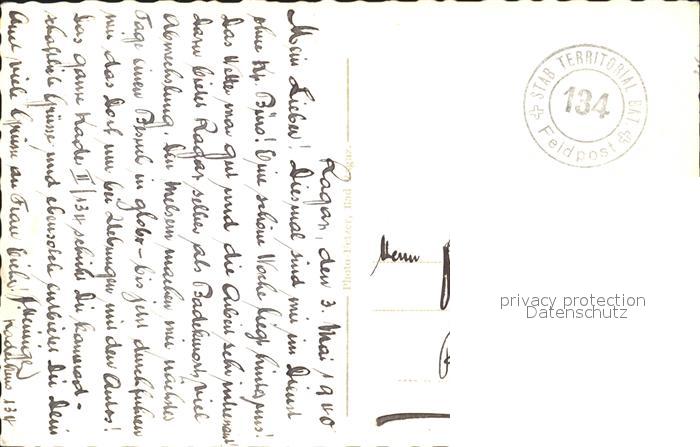 Ragaz, den 3. Mai 1940
Mein Lieber! Diesmal sind wir im Dienst
ohne Kp. Büro! Eine schöne Woche liegt hinter uns!
Das Wetter war gut und die Arbeit sehr interessant
dazu bietet Ragaz selber als Badekurort viel
Abwechslung. In Melsen machen wir nächster
Tage einen Besuch in globo - bis jetzt durchfuhren
wir das Dorf nur bei Uebungen mit den Autos!
Das ganze Kader II/134 schickt Dir kamerad-
schaftliche Grüsse und ebensolche entbietet Dir Dein
Auch viele Grüsse an Frau
134
Photo Felzer, Bad Ragaz
STAB TERRITORIAL BAT
134
Feldpost
Herrn
privacy protection
Datenschutz